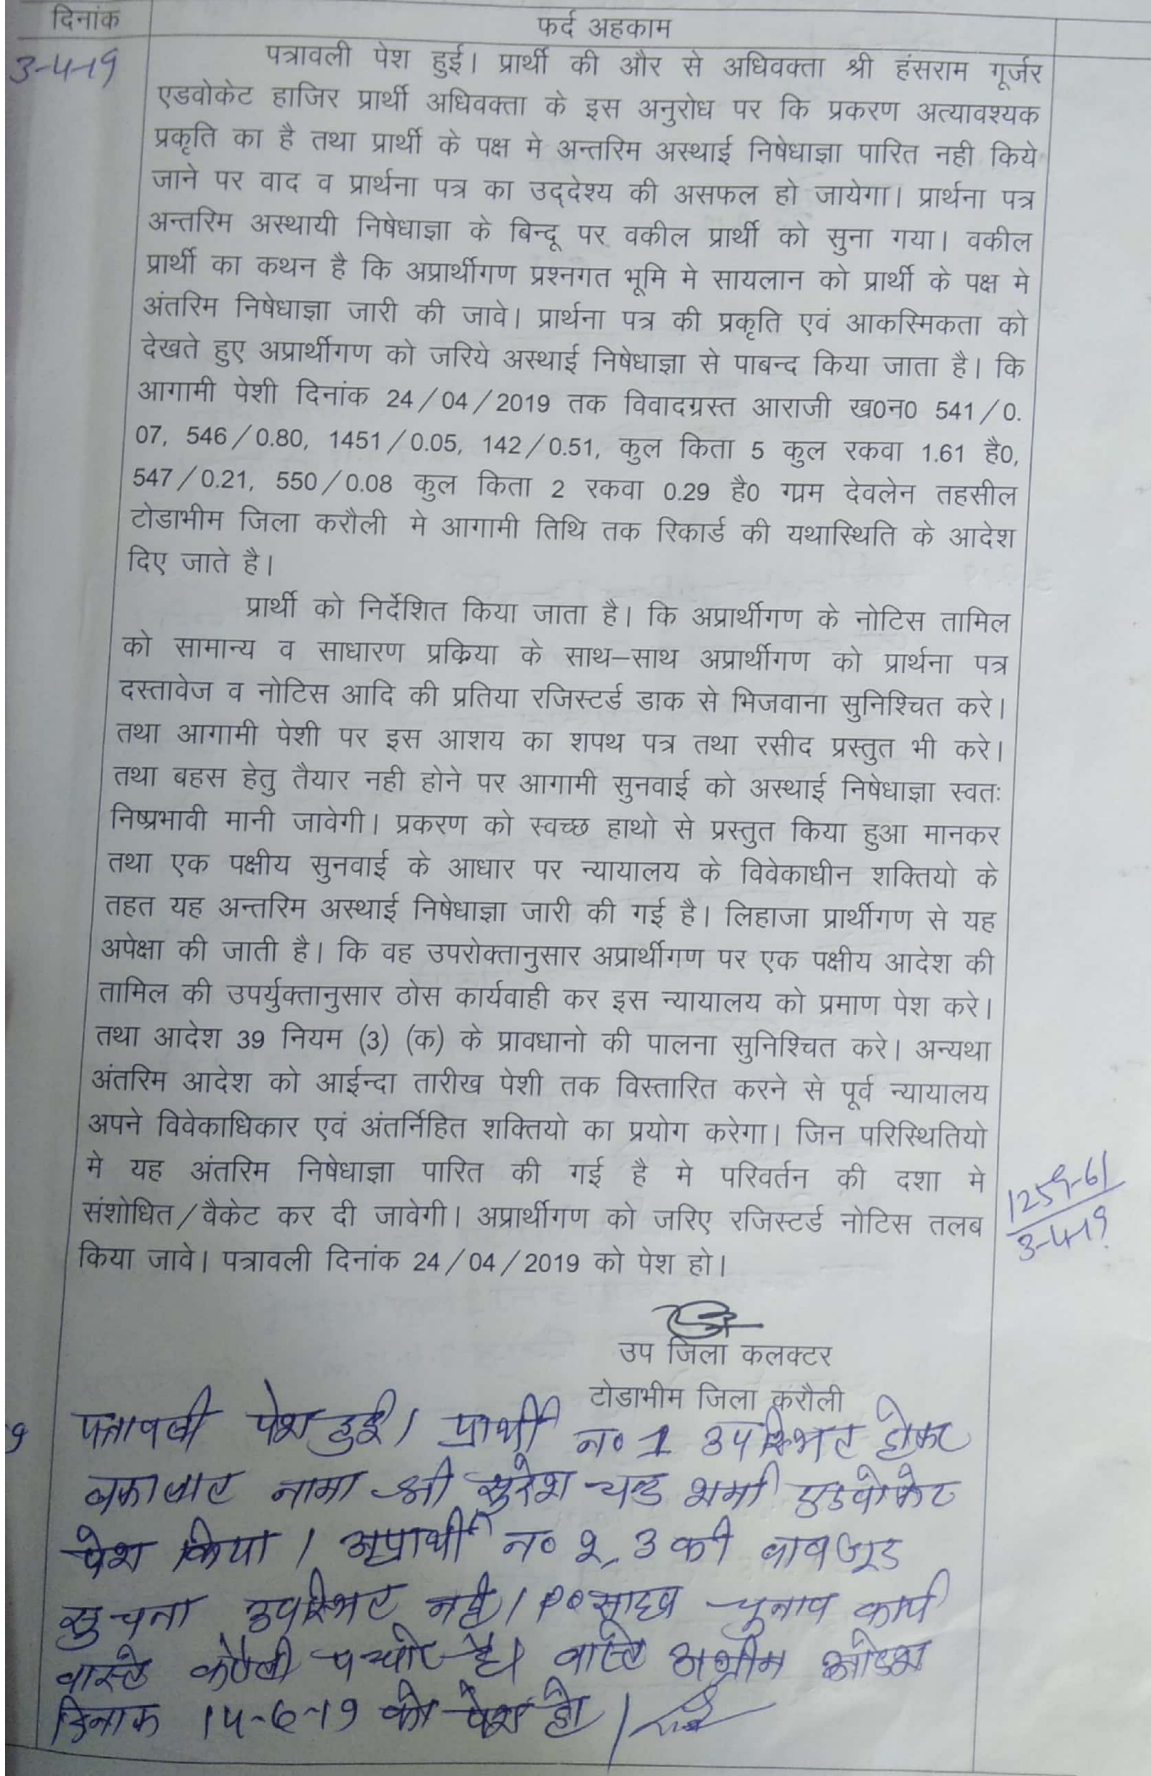 दिनांक
फर्द अहकाम
3-4-19
पत्रावली पेश हुई। प्रार्थी की और से अधिवक्ता श्री हंसराम गूर्जर
एडवोकेट हाजिर प्रार्थी अधिवक्ता के इस अनुरोध पर कि प्रकरण अत्यावश्यक
प्रकृति का है तथा प्रार्थी के पक्ष मे अन्तरिम अस्थाई निषेधाज्ञा पारित नही किये
जाने पर वाद व प्रार्थना पत्र का उद्देश्य की असफल हो जायेगा। प्रार्थना पत्र
अन्तरिम अस्थायी निषेधाज्ञा के बिन्दू पर वकील प्रार्थी को सुना गया। वकील
प्रार्थी का कथन है कि अप्रार्थीगण प्रश्नगत भूमि मे सायलान को प्रार्थी के पक्ष मे
अंतरिम निषेधाज्ञा जारी की जावे। प्रार्थना पत्र की प्रकृति एवं आकस्मिकता को
देखते हुए अप्रार्थीगण को जरिये अस्थाई निषेधाज्ञा से पाबन्द किया जाता है। कि
आगामी पेशी दिनांक 24/04/2019 तक विवादग्रस्त आराजी ख0न0 541/0.
07, 546/0.80, 1451/0.05, 142/0.51, कुल किता 5 कुल रकवा 1.61 है0,
547/0.21, 550/0.08 कुल किता 2 रकवा 0.29 है0 ग्रम देवलेन तहसील
टोडाभीम जिला करौली मे आगामी तिथि तक रिकार्ड की यथास्थिति के आदेश
दिए जाते है।
प्रार्थी को निर्देशित किया जाता है। कि अप्रार्थीगण के नोटिस तामिल
को सामान्य व साधारण प्रकिया के साथ–साथ अप्रार्थीगण को प्रार्थना पत्र
दस्तावेज व नोटिस आदि की प्रतिया रजिस्टर्ड डाक से भिजवाना सुनिश्चित करे।
तथा आगामी पेशी पर इस आशय का शपथ पत्र तथा रसीद प्रस्तुत भी करे।
तथा बहस हेतु तैयार नही होने पर आगामी सुनवाई को अस्थाई निषेधाज्ञा स्वतः
निष्प्रभावी मानी जावेगी। प्रकरण को स्वच्छ हाथो से प्रस्तुत किया हुआ मानकर
तथा एक पक्षीय सुनवाई के आधार पर न्यायालय के विवेकाधीन शक्तियो के
तहत यह अन्तरिम अस्थाई निषेधाज्ञा जारी की गई है। लिहाजा प्रार्थीगण से यह
अपेक्षा की जाती है। कि वह उपरोक्तानुसार अप्रार्थीगण पर एक पक्षीय आदेश की
तामिल की उपर्युक्तानुसार ठोस कार्यवाही कर इस न्यायालय को प्रमाण पेश करे।
तथा आदेश 39 नियम (3) (क) के प्रावधानो की पालना सुनिश्चित करे। अन्यथा
अंतरिम आदेश को आईन्दा तारीख पेशी तक विस्तारित करने से पूर्व न्यायालय
अपने विवेकाधिकार एवं अंतर्निहित शक्तियो का प्रयोग करेगा। जिन परिस्थितियो
मे यह अंतरिम निषेधाज्ञा पारित की गई है मे परिवर्तन की दशा मे
संशोधित/वैकेट कर दी जावेगी। अप्रार्थीगण को जरिए रजिस्टर्ड नोटिस तलब
किया जावे। पत्रावली दिनांक 24/04/2019 को पेश हो।
1259-61
3-4-19
उप जिला कलक्टर
टोडाभीम जिला करौली
पत्रावली पेश हुई। प्रार्थी न० 1 उपस्थित होकर
वकालात नामा श्री सुरेश चन्द शर्मा एडवोकेट
पेश किया। अप्रार्थी न० 2, 3 की बावजूद
सुचना उपस्थित नही। PO साहब चुनाव कार्य
वास्ते पधारे है। वास्ते अग्रीम आदेश
दिनाक 14-6-19 को पेश हो।